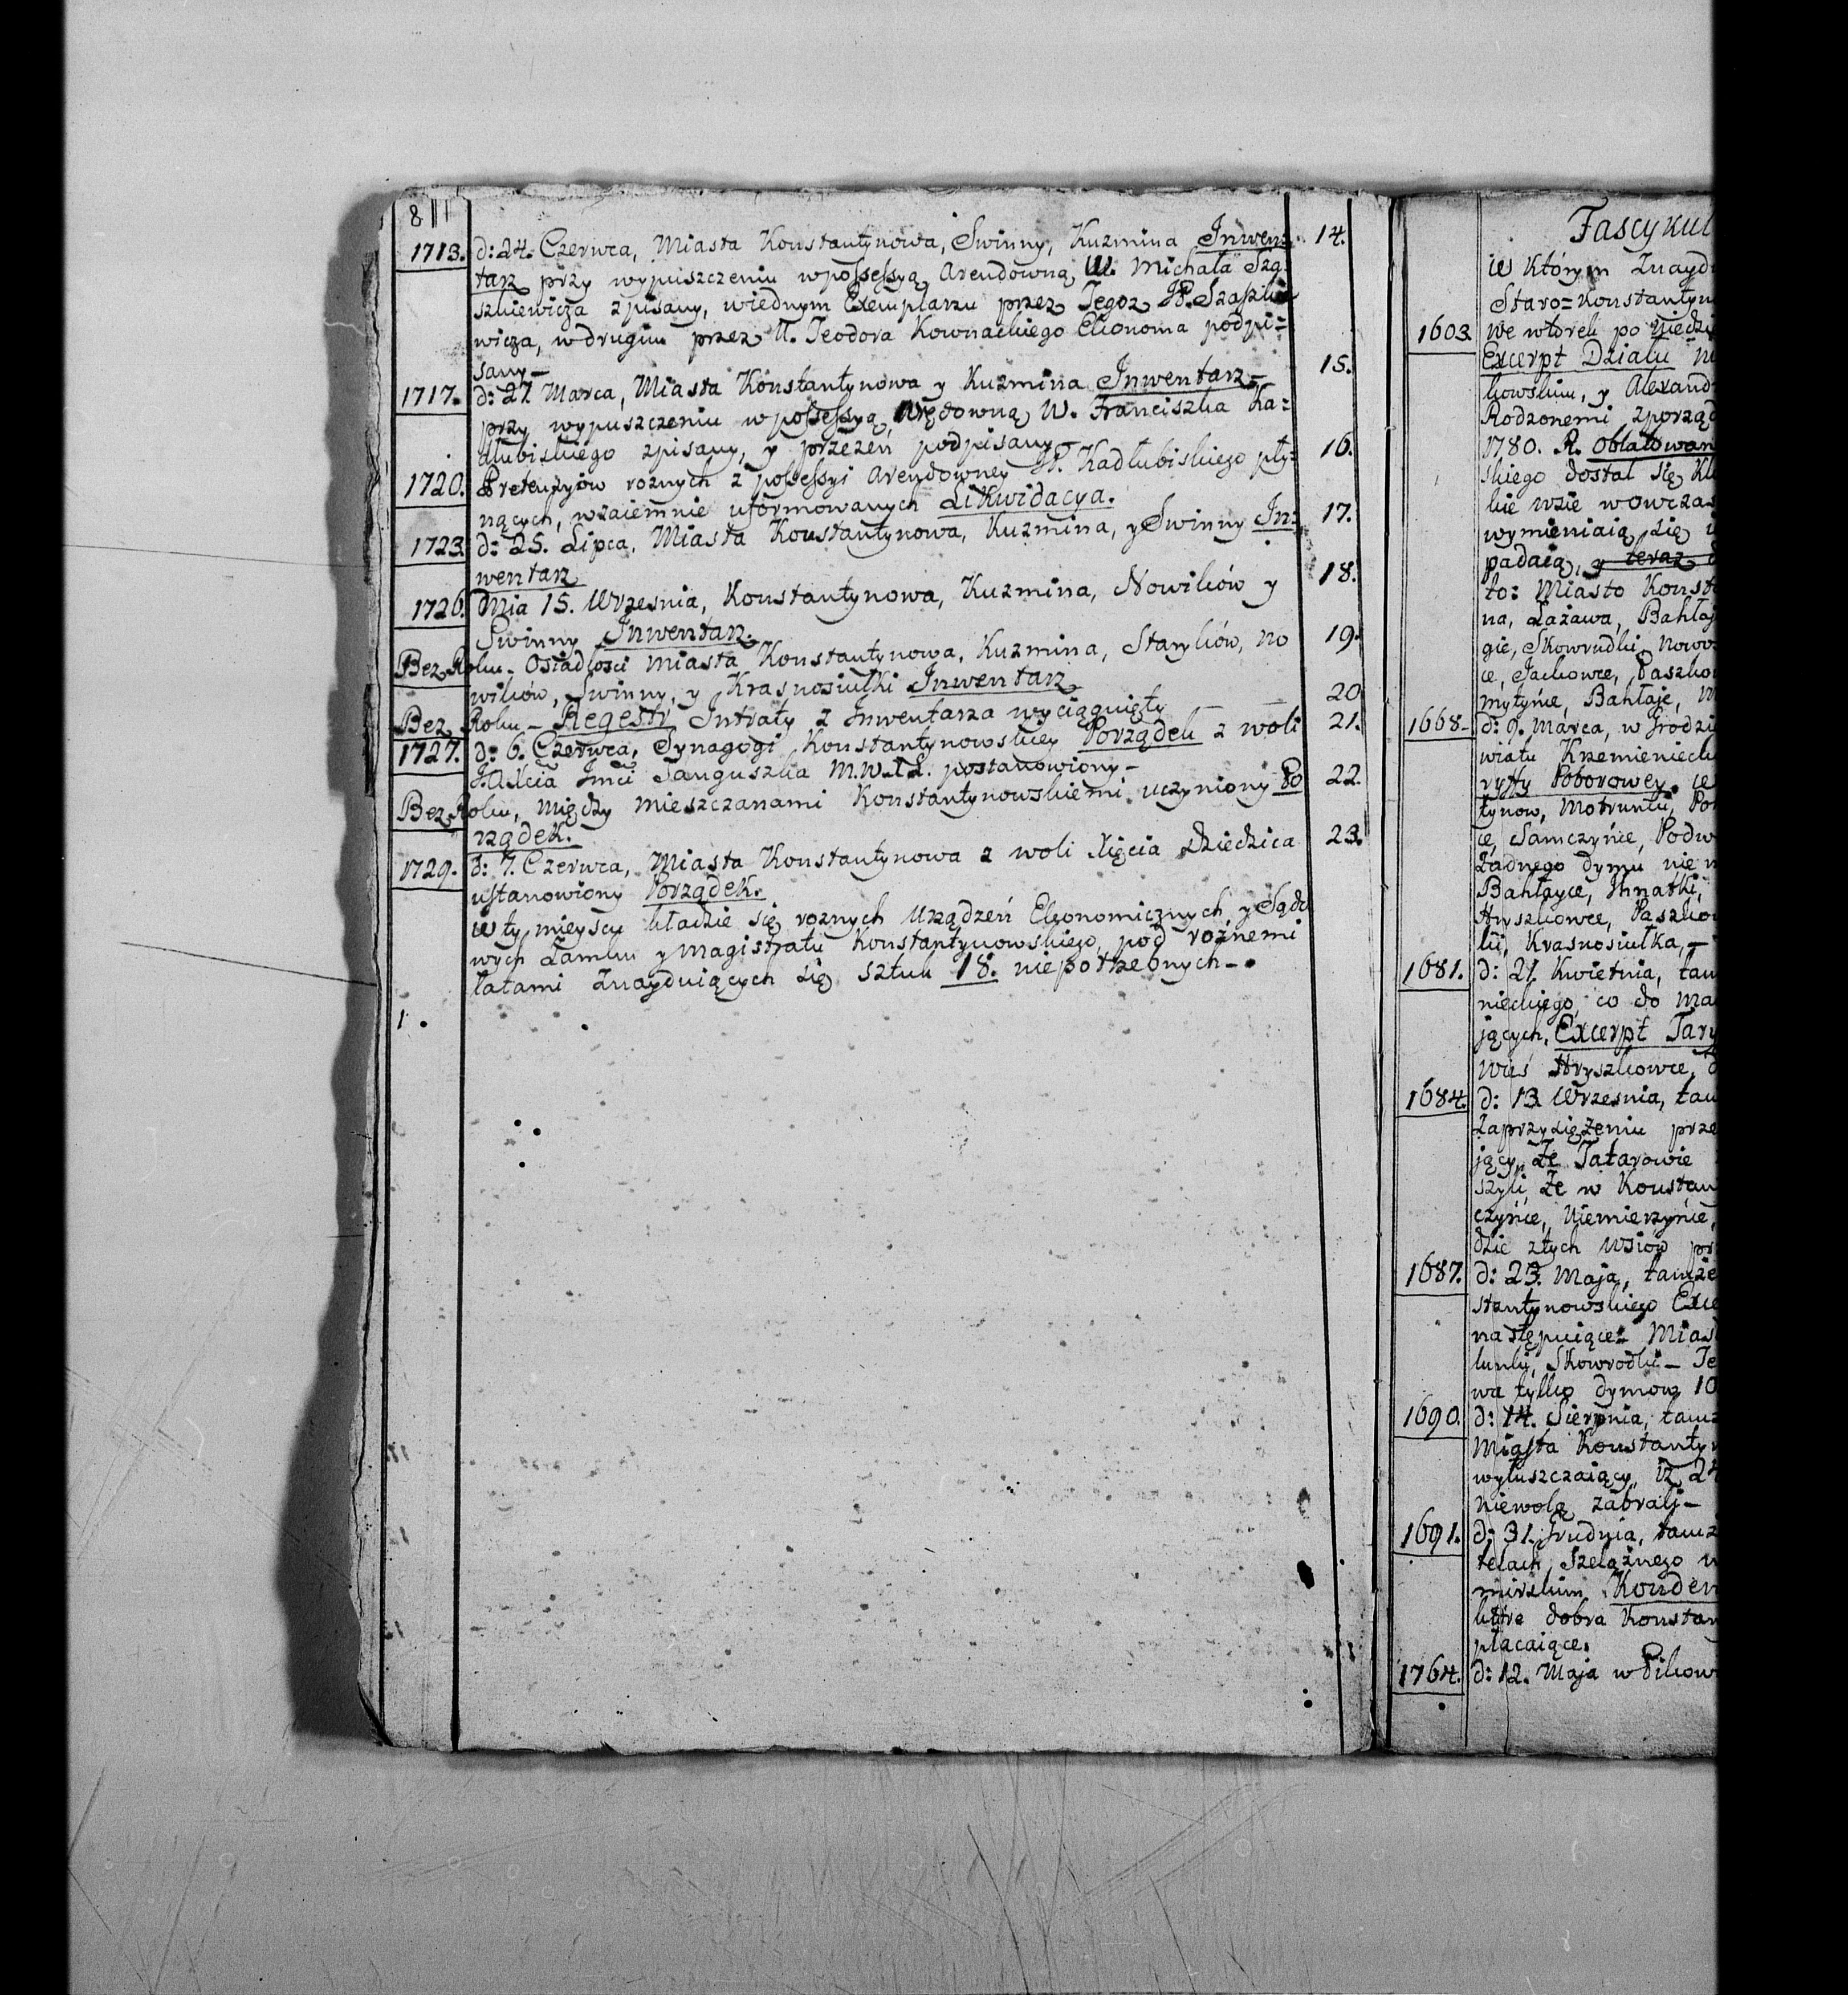 8
1713. d: 24. Czerwca, Miasta Konstantynowa, Swinny, Kuzmina Inwen= 14.
tarz przy wypuszczeniu wpossessyą Arendowną W. Michała Sza=
szkiewicza zpisany, wiednym Exemplarzu przez Tegoz JP. Szaszkie
wicza, wdrugim przez U. Teodora Kownackiego Ekonoma podpi=
sany—
1717. d: 27. Marca, Miasta Konstantynowa y Kuzmina Inwentarz— 15.
przy wypuszczeniu wpossessyą Arędowną W. Franciszka Ka=
dłubiskiego zpisany, y przezeń podpisany
1720. Pretensyiow roznych z possessyi Arendowney JP. Kadłubiskiego pły= 16.
nących, wzaiemnie uformowanych Likwidacya.
1723. d: 25. Lipca, Miasta Konstantynowa, Kuzmina, y Swinny In= 17.
wentarz
1726. Dnia 15. Wrzesnia, Konstantynowa, Kuzmina, Nowików y 18.
Swinny Inwentarz.
Bez Roku— Osiadłosci Miasta Konstantynowa, Kuzmina, Staryków, No 19.
wików, Swinny, y Krasnosiułki Inwentarz
Bez Roku— Regestr Intraty z Inwentarza wyciągnięty 20
1727. d: 6. Czerwca, Synagogi Konstantynowskiey Porządek z woli 21.
JOXcia Jmci Sanguszka M.W.X.L. postanowiony—
Bez Roku, między Mieszczanami Konstantynowskiemi uczyniony Po 22.
rządek.
1729. d: 7. Czerwca, Miasta Konstantynowa z woli Xięcia Dziedzica 23.
ustanowiony Porządek.
W ty mieyscu kładzie się roznych Urządzeń Ekonomicznych y Sądo
wych Zamku y Magistratu Konstantynowskiego, pod roznemi
latami Znayduiących się sztuk 18. niepotrzebnych—
1.
Fascykuł
W którym Znayd
Staro=Konstantyn
1603. we wtorek po Niedzi
Excerpt Działu
kowskim, y Alexand
Rodzonemi zporząd
1780. R. Oblatowan
skiego dostał się
kie wsie wowczas
wymieniaią się
padaią, y teraz
to: Miasto Konst
na, Łażawa, Bahłaj
gie, Skowrudki, Nowo
ce, Jachowce, Paszko
mytyńce, Bahłaje,
1668. d: 9. Marca, w Grodzi
wiatu Krzemienieck
ryffy Poborowey,
tynow, Motrunki, Po
ce, Samczyńce, Podw
Żadnego dymu nie
Bahłayce, Jhnatki,
Hryszkowce, Paszko
ki, Krasnosiułka,—
1681. d: 21. Kwietnia, tam
nieckiego, co do
jących, Excerpt Tary
Wieś Hryszkowce,
1684. d: 13 Wrzesnia, tam
Zaprzysiężeniu prze
jący, Że Tatarowie
szyli, Że w Konstan
czyńce, Niemierzyńce,
dzie złych wsiow
1687. d: 23. Maja, tamże
stantynowskiego Exce
następuiące= Mias
lunki, Skowrodki—
wa tylko dymow 10
1690. d: 14. Sierpnia, tam
Miasta Konstanty
wyłuszczaiący, iż 24
niewolę zabrali—
1691. d: 31. Grudnia, tam
telach, Szelążnego
mirskim, Konden
które dobra Konstan
płacaiące.
1764. d: 12. Maja w Pikow